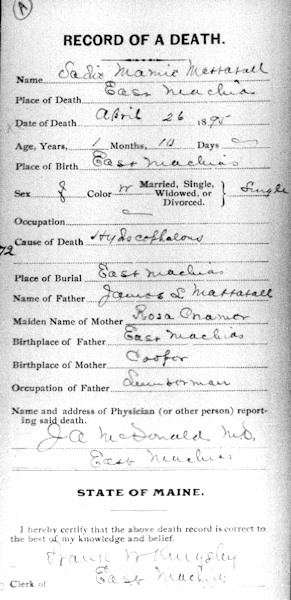 A
RECORD OF A DEATH.
Name Sadie Mamie
Place of Death East Machias
Date of Death April 26 1895
Age, Years, 1 Months, 10 Days
Place of Birth East Machias
Sex f Color W Married, Single, Widowed, or Divorced. } Single
Occupation
Cause of Death Hydrocephalous
72
Place of Burial East Machias
Name of Father James L
Maiden Name of Mother Rosa
Birthplace of Father East Machias
Birthplace of Mother Cooper
Occupation of Father Lumberman
Name and address of Physician (or other person) report-
ing said death.
J A McDonald M.D.
East Machias
STATE OF MAINE.
I hereby certify that the above death record is correct to
the best of my knowledge and belief.
Frank W Kingsley
Clerk of East Machias